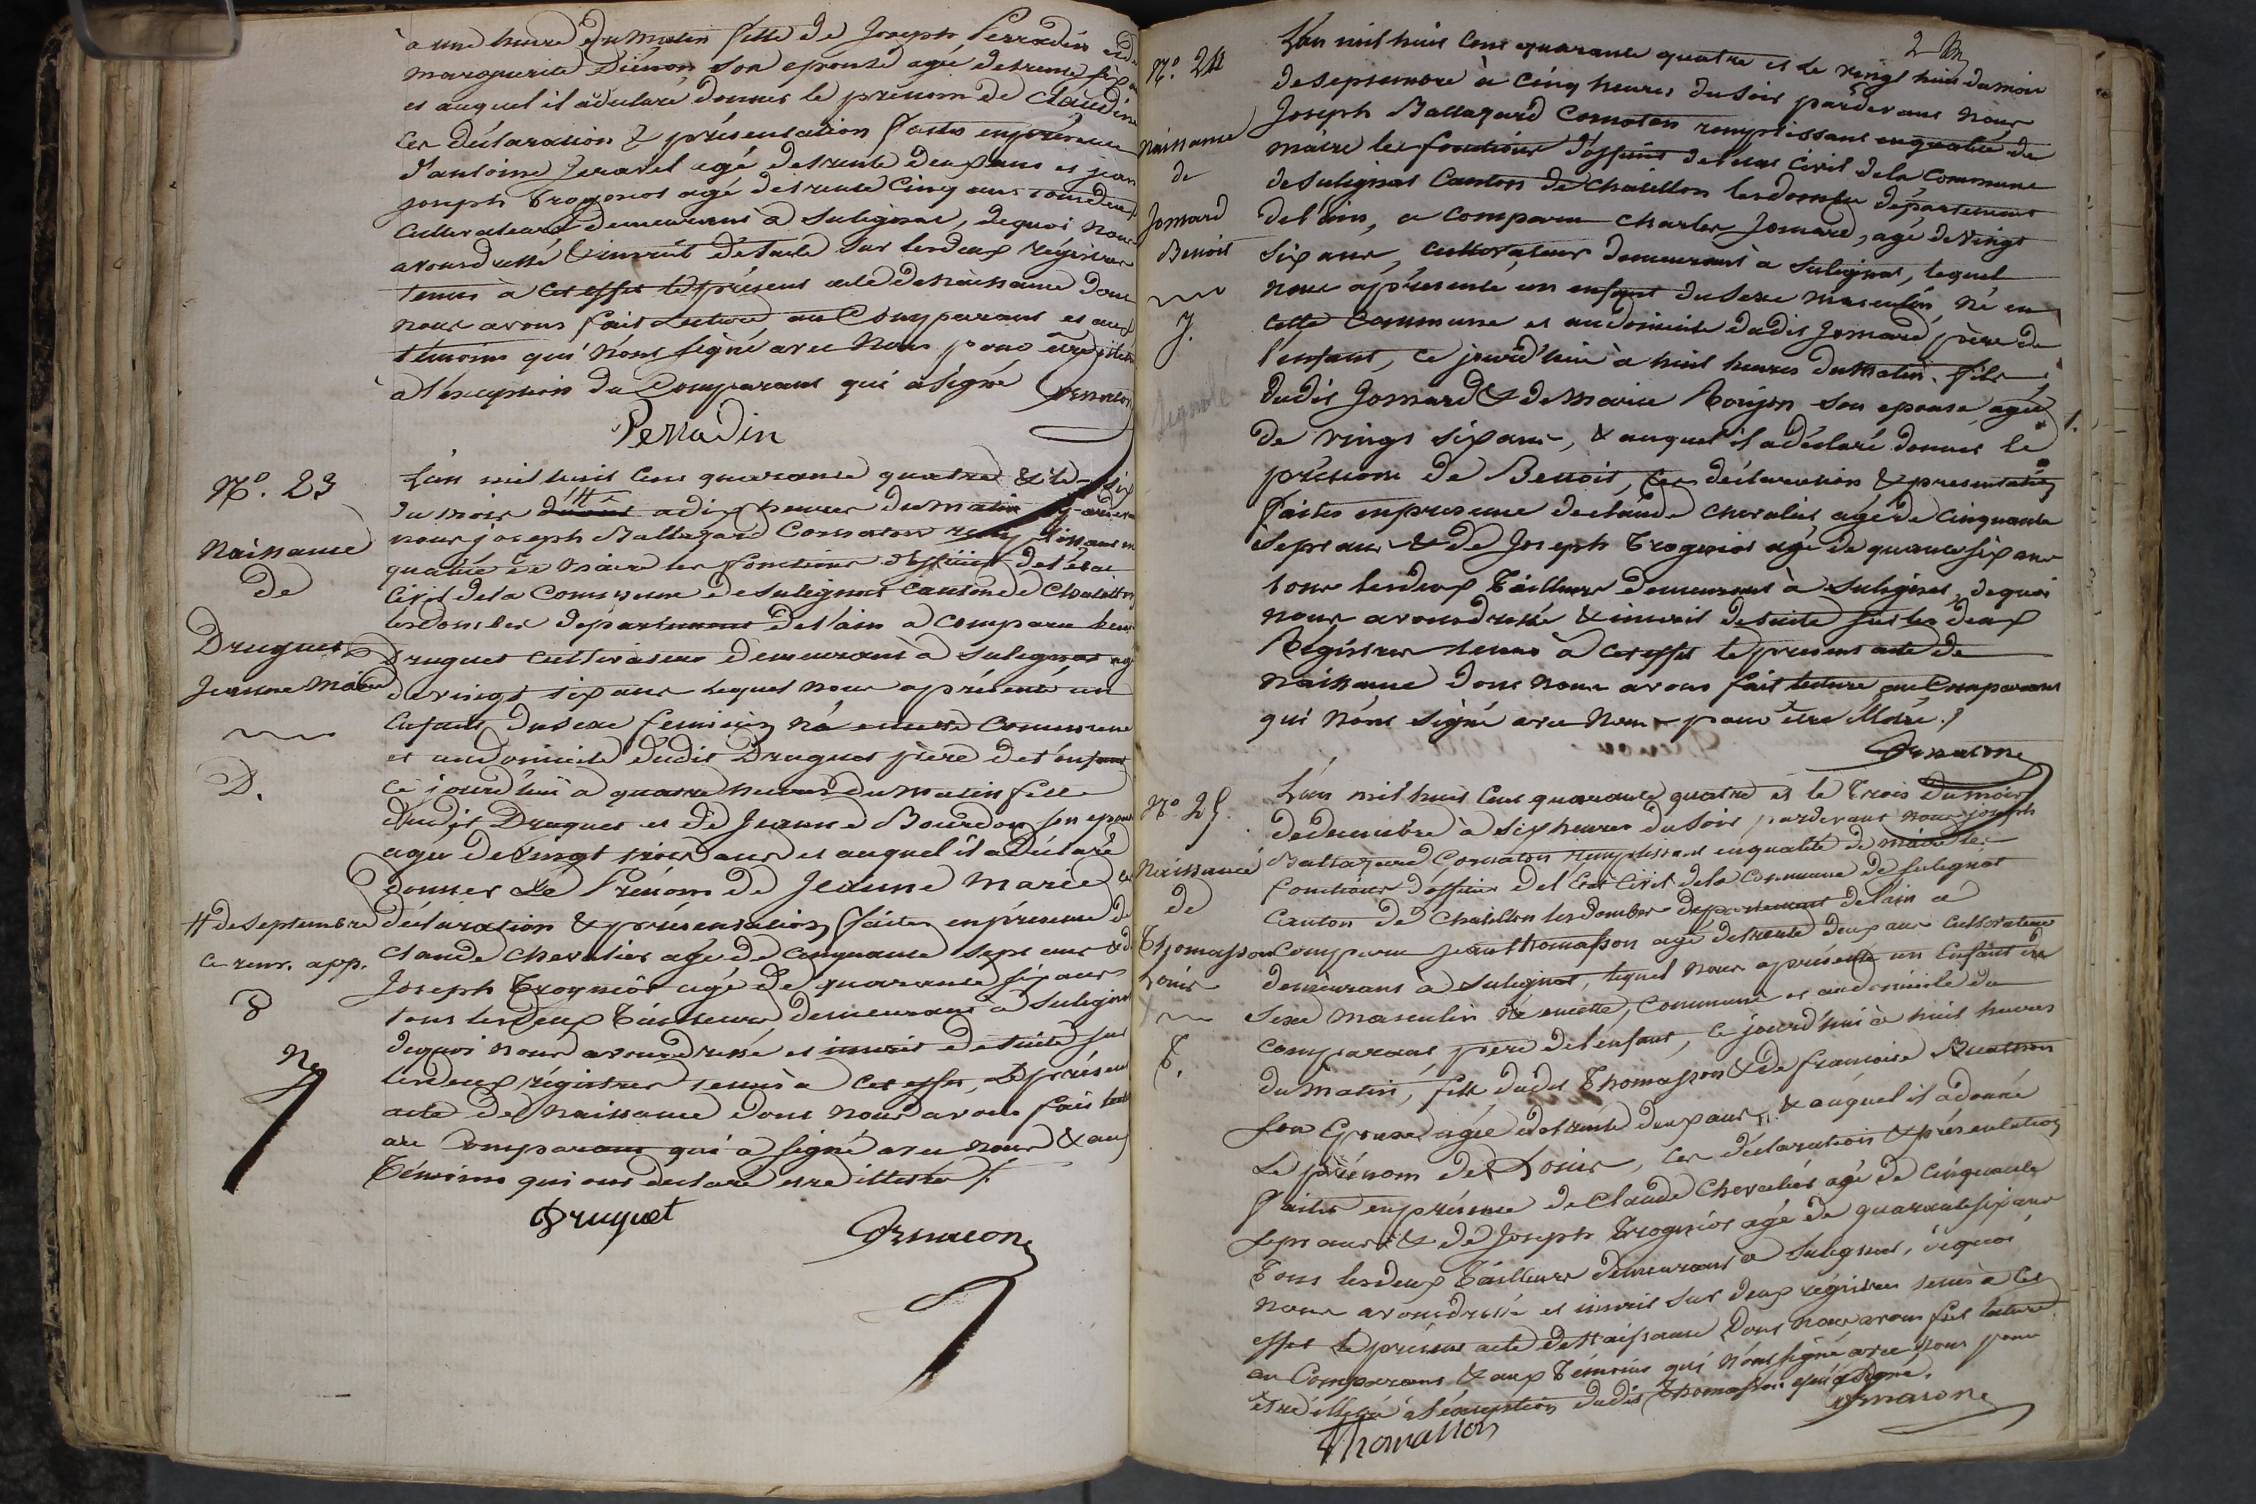 à une heure du Matin fille de Joseph Perradin et de
Marguerite Diénon son épouse agée de trente six ans
et auquel il a déclaré donner le prénom de Claudine
Ces déclaration & présentation faites en présence
d'antoine Jeravel agé de trente deux ans et jean
joseph Trognios agé de trente Cinq ans tous deux
Cultivateurs demeurant à Sulignat, de quoi nous
avons dressé & inscrit de suite sur les deux régistres
tenus à cet effet le présent acte de naissance dont
nous avons fait lecture au Comparant et aux
témoins qui n'ont signé avec nous pour être
à l'exception du Comparant qui a signé
Perradin
N°. 23
Naissance
de
Druguet
Jeanne Marie
D.
L'an mil huit Cent quarante quatre & le six
du mois # à dix heures du matin par devant
nous joseph Baltazard Cornaton remplissant en
qualité de Maire les fonctions d'officier de l'état
Civil de la Commune de Sulignat Canton de Chatillon
les dombes département de l'ain a comparu
Druguet Cultivateur demeurant à Sulignat agé
de vingt six ans lequel nous a présenté un
Enfant du sexe feminin né en cette Commune
et au domicile dudit Druguet père de l'enfant
Ce jourd'hui à quatre heures du Matin fille
dudit Druguet et de Jeanne Bourdon son épouse
agée de vingt trois ans et auquel il a déclaré
donner Le Prénom de Jeanne Marie Ces
# de Septembre
ce renv. app.
déclaration & présentation faites en présence de
Claude Chevalier agé de Cinquante sept ans & de
Joseph Trognios agé de quarante six ans
tous les deux Tailleurs demeurant à Sulignat
de quoi nous avons dressé et inscrit de suite sur
les deux régistres tenus à cet effet, Le présent
acte de naissance dont nous avons fait lecture
au Comparant qui a signé avec nous & aux
Témoins qui ont declaré être illettrés
Druguet
N°. 24
Naissance
de
Jomard
Benoit
J.
L'an mil huit Cent quarante quatre et le vingt huit du mois
de septembre à Cinq heures du soir par devant nous
Joseph Baltazard Cornaton remplissant en qualité de
maire les fonctions d'officier de l'état Civil de la Commune
de Sulignat Canton de Chatillon les dombes département
de l'ain, a Comparu Charles Jomard, agé de vingt
six ans, cultivateur demeurant à Sulignat, lequel
nous a présenté un enfant du Sexe masculin né en
cette Commune et au domicile dudit Jomard père de
l'enfant, ce jourd'hui à huit heures du Matin. fils
dudit Jomard & de Marie Roujon son épouse agée
de vingt six ans, & auquel il a déclaré donner le
prénom de Benoit, Ces déclaration & présentation
faites en présence de Claude Chevalier agé de Cinquante
sept ans & de Joseph Trognios agé de quarante six ans
tous les deux Tailleurs demeurant à Sulignat, de quoi
nous avons dressé & inscrit de suite sur les deux
Régistres tenus à cet effet le présent acte de
Naissance dont nous avons fait lecture au Comparant
qui n'ont signé avec nous pour être illetré.
N°. 25
Naissance
de
Thomasson
Louis
T.
L'an mil huit Cent quarante quatre et le Trois du mois
de decembre à six heures du soir par devant nous joseph
Baltazard Cornaton remplissant en qualité de maire les
fonctions d'officier de l'Etat Civil de la Commune de Sulignat
Canton de Chatillon les dombes département de l'ain a
comparu Jean thomasson agé de trente deux ans Cultivateur
demeurant à Sulignat, lequel nous a présenté un Enfant du
Sexe Masculin né en cette Commune et au domicile du
Comparant père de l'enfant, ce jourd'hui à huit heures
du Matin, fils dudit Thomasson & de francoise
son Epouse agée de trente deux ans & auquel il a donné
Le prénom de Louis, Ces déclaration & présentation
faites en présence de Claude Chevalier agé de Cinquante
sept ans & de Joseph Trognios agé de quarante six ans
Tous les deux Tailleurs demeurant à Sulignat, de quoi
nous avons dressé et inscrit sur deux régistres tenus à cet
effet Le présent acte de Naissance Dont nous avons fait lecture
au Comparant & aux Témoins qui n'ont signé avec nous pour
être illetré à l'éxception dudit Thomasson qui a Signé.
Thomasson